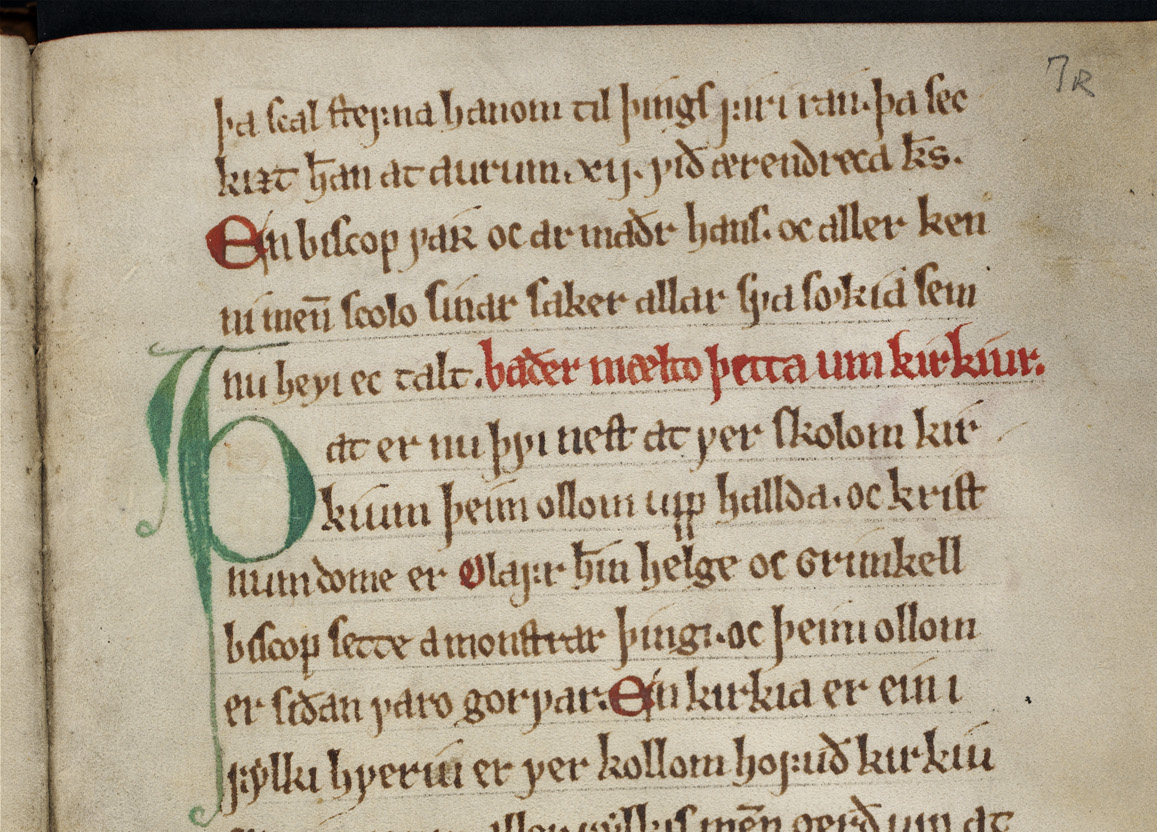 7R
þa scal ſteꝼna hanom til þingſ ꝼirir ran. þa sec
kizt h̅an at aurum .xij. ỽið ærendreca k̅s.
En biſcop ỽaʀ oc armaðr hanſ. oc aller ken
ni men̅ scolo sinar saker allar sỽa sǫkia sem
nu heỽi ec talt. baðer mælto þetta um kirkiur.
Þat er nu þỽi neſt at ỽer skolom kir
kium þeim ollom upp hallda. oc kriſt
num dome er Olaꝼr h̅in helge oc Grimkell
biſcop sette a monſtrar þingi. oc þeim ollom
er siðan ỽaro gorỽar. En kirkia er ein i
ꝼylki hỽeriu er ỽer kollom hoꝼuð kirkiu
aller ꝼylkiſ men̅ gerð up at